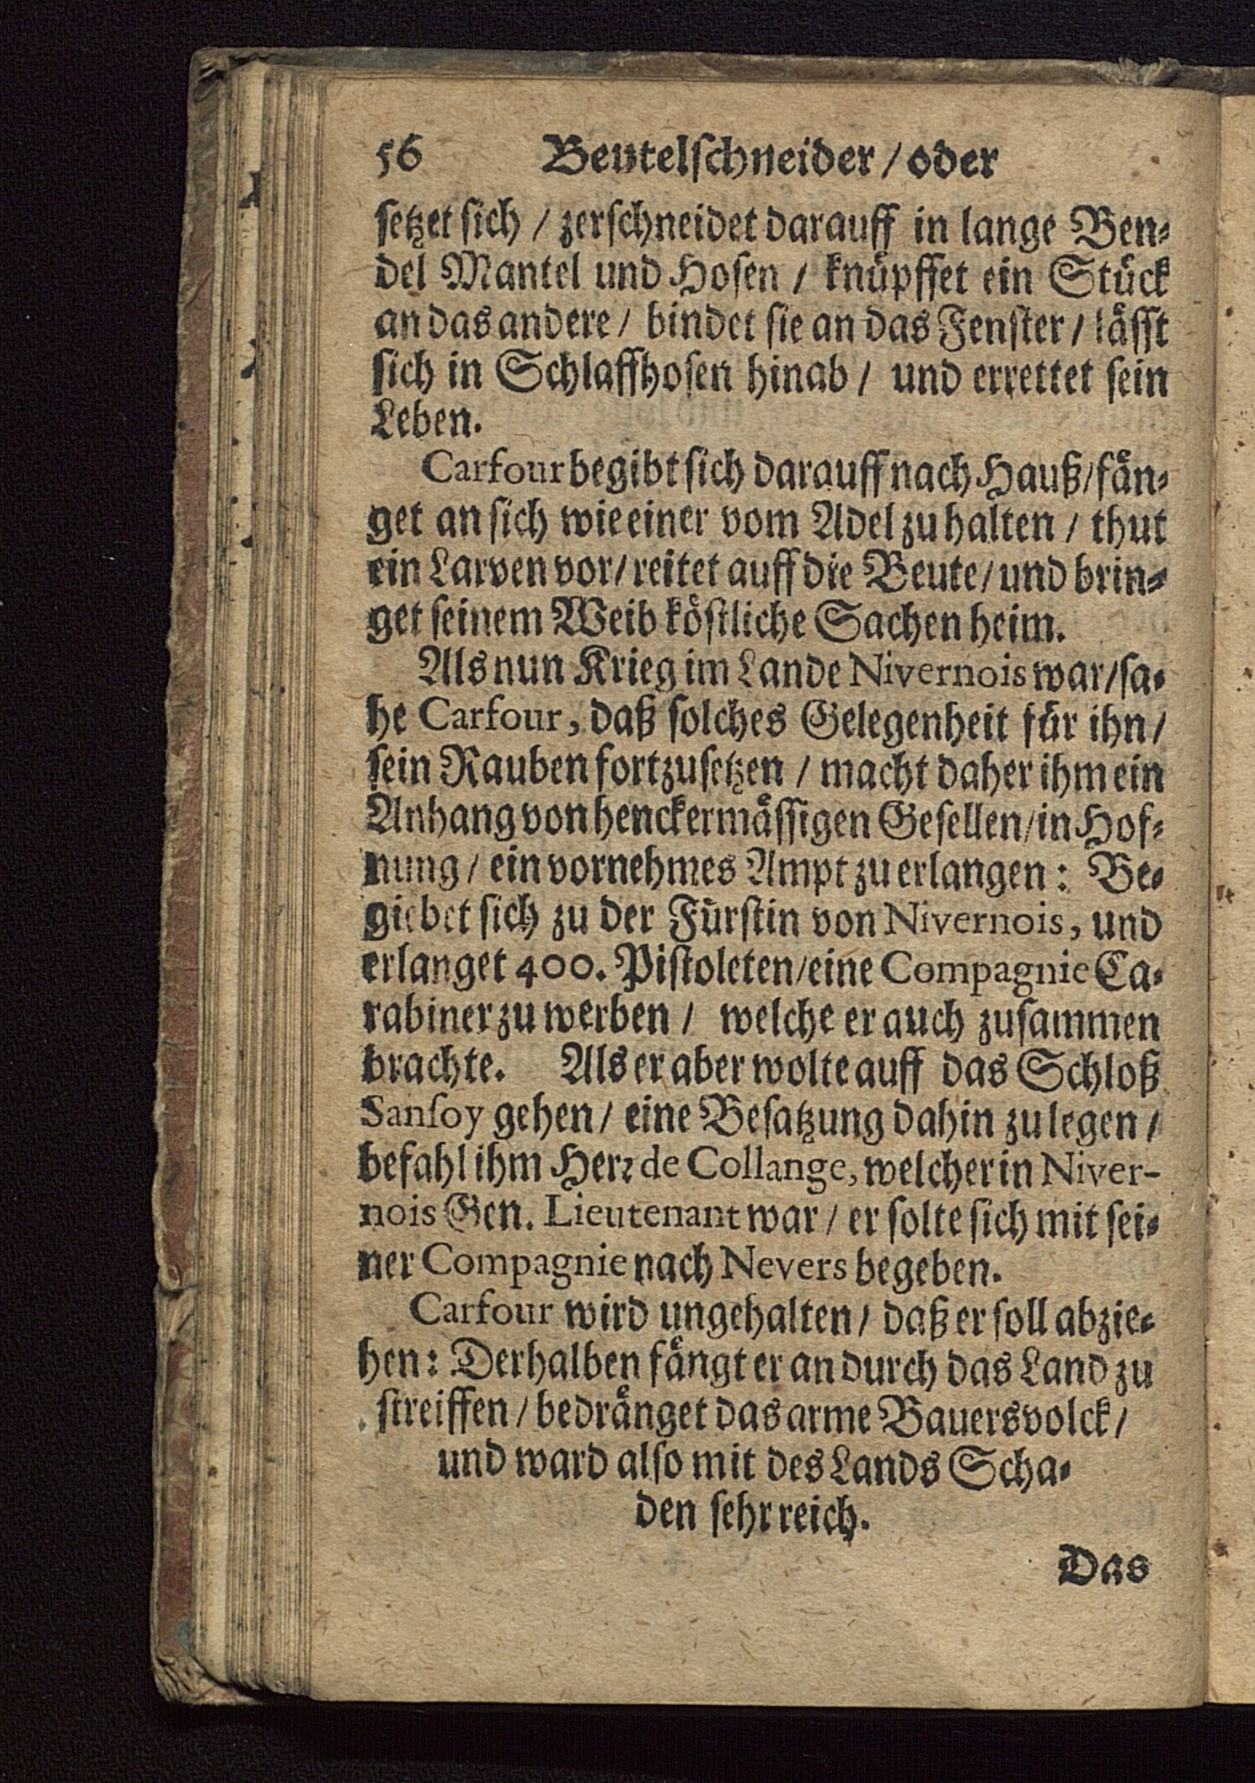 56 Beutelschneider / oder
setzet sich / zerschneidet darauff in lange Ben-
del Mantel und Hosen / knüpffet ein Stück
an das andere / bindet sie an das Fenster / lässt
sich in Schlaffhosen hinab / und errettet sein
Leben.
Carfour begibt sich darauff nach Hauß / fän-
get an sich wie einer vom Adel zu halten / thut
ein Larven vor / reitet auff die Beute / und brin-
get seinem Weib köstliche Sachen heim.
Als nun Krieg im Lande Nivernois war / sa-
he Carfour, daß solches Gelegenheit für ihn /
sein Rauben fortzusetzen / macht daher ihm ein
Anhang von henckermässigen Gesellen / in Hof-
nung / ein vornehmes Ampt zu erlangen: Be-
giebet sich zu der Fürstin von Nivernois, und
erlanget 400. Pistoleten / eine Compagnie Ca-
rabiner zu werben / welche er auch zusammen
brachte. Als er aber wolte auff das Schloß
Sansoy gehen / eine Besatzung dahin zu legen /
befahl ihm Herr de Collange, welcher in Niver-
nois Gen. Lieutenant war / er solte sich mit sei-
ner Compagnie nach Nevers begeben.
Carfour wird ungehalten / daß er soll abzie-
hen: Derhalben fängt er an durch das Land zu
streiffen / bedränget das arme Bauersvolck /
und ward also mit des Lands Scha-
den sehr reich.
Das